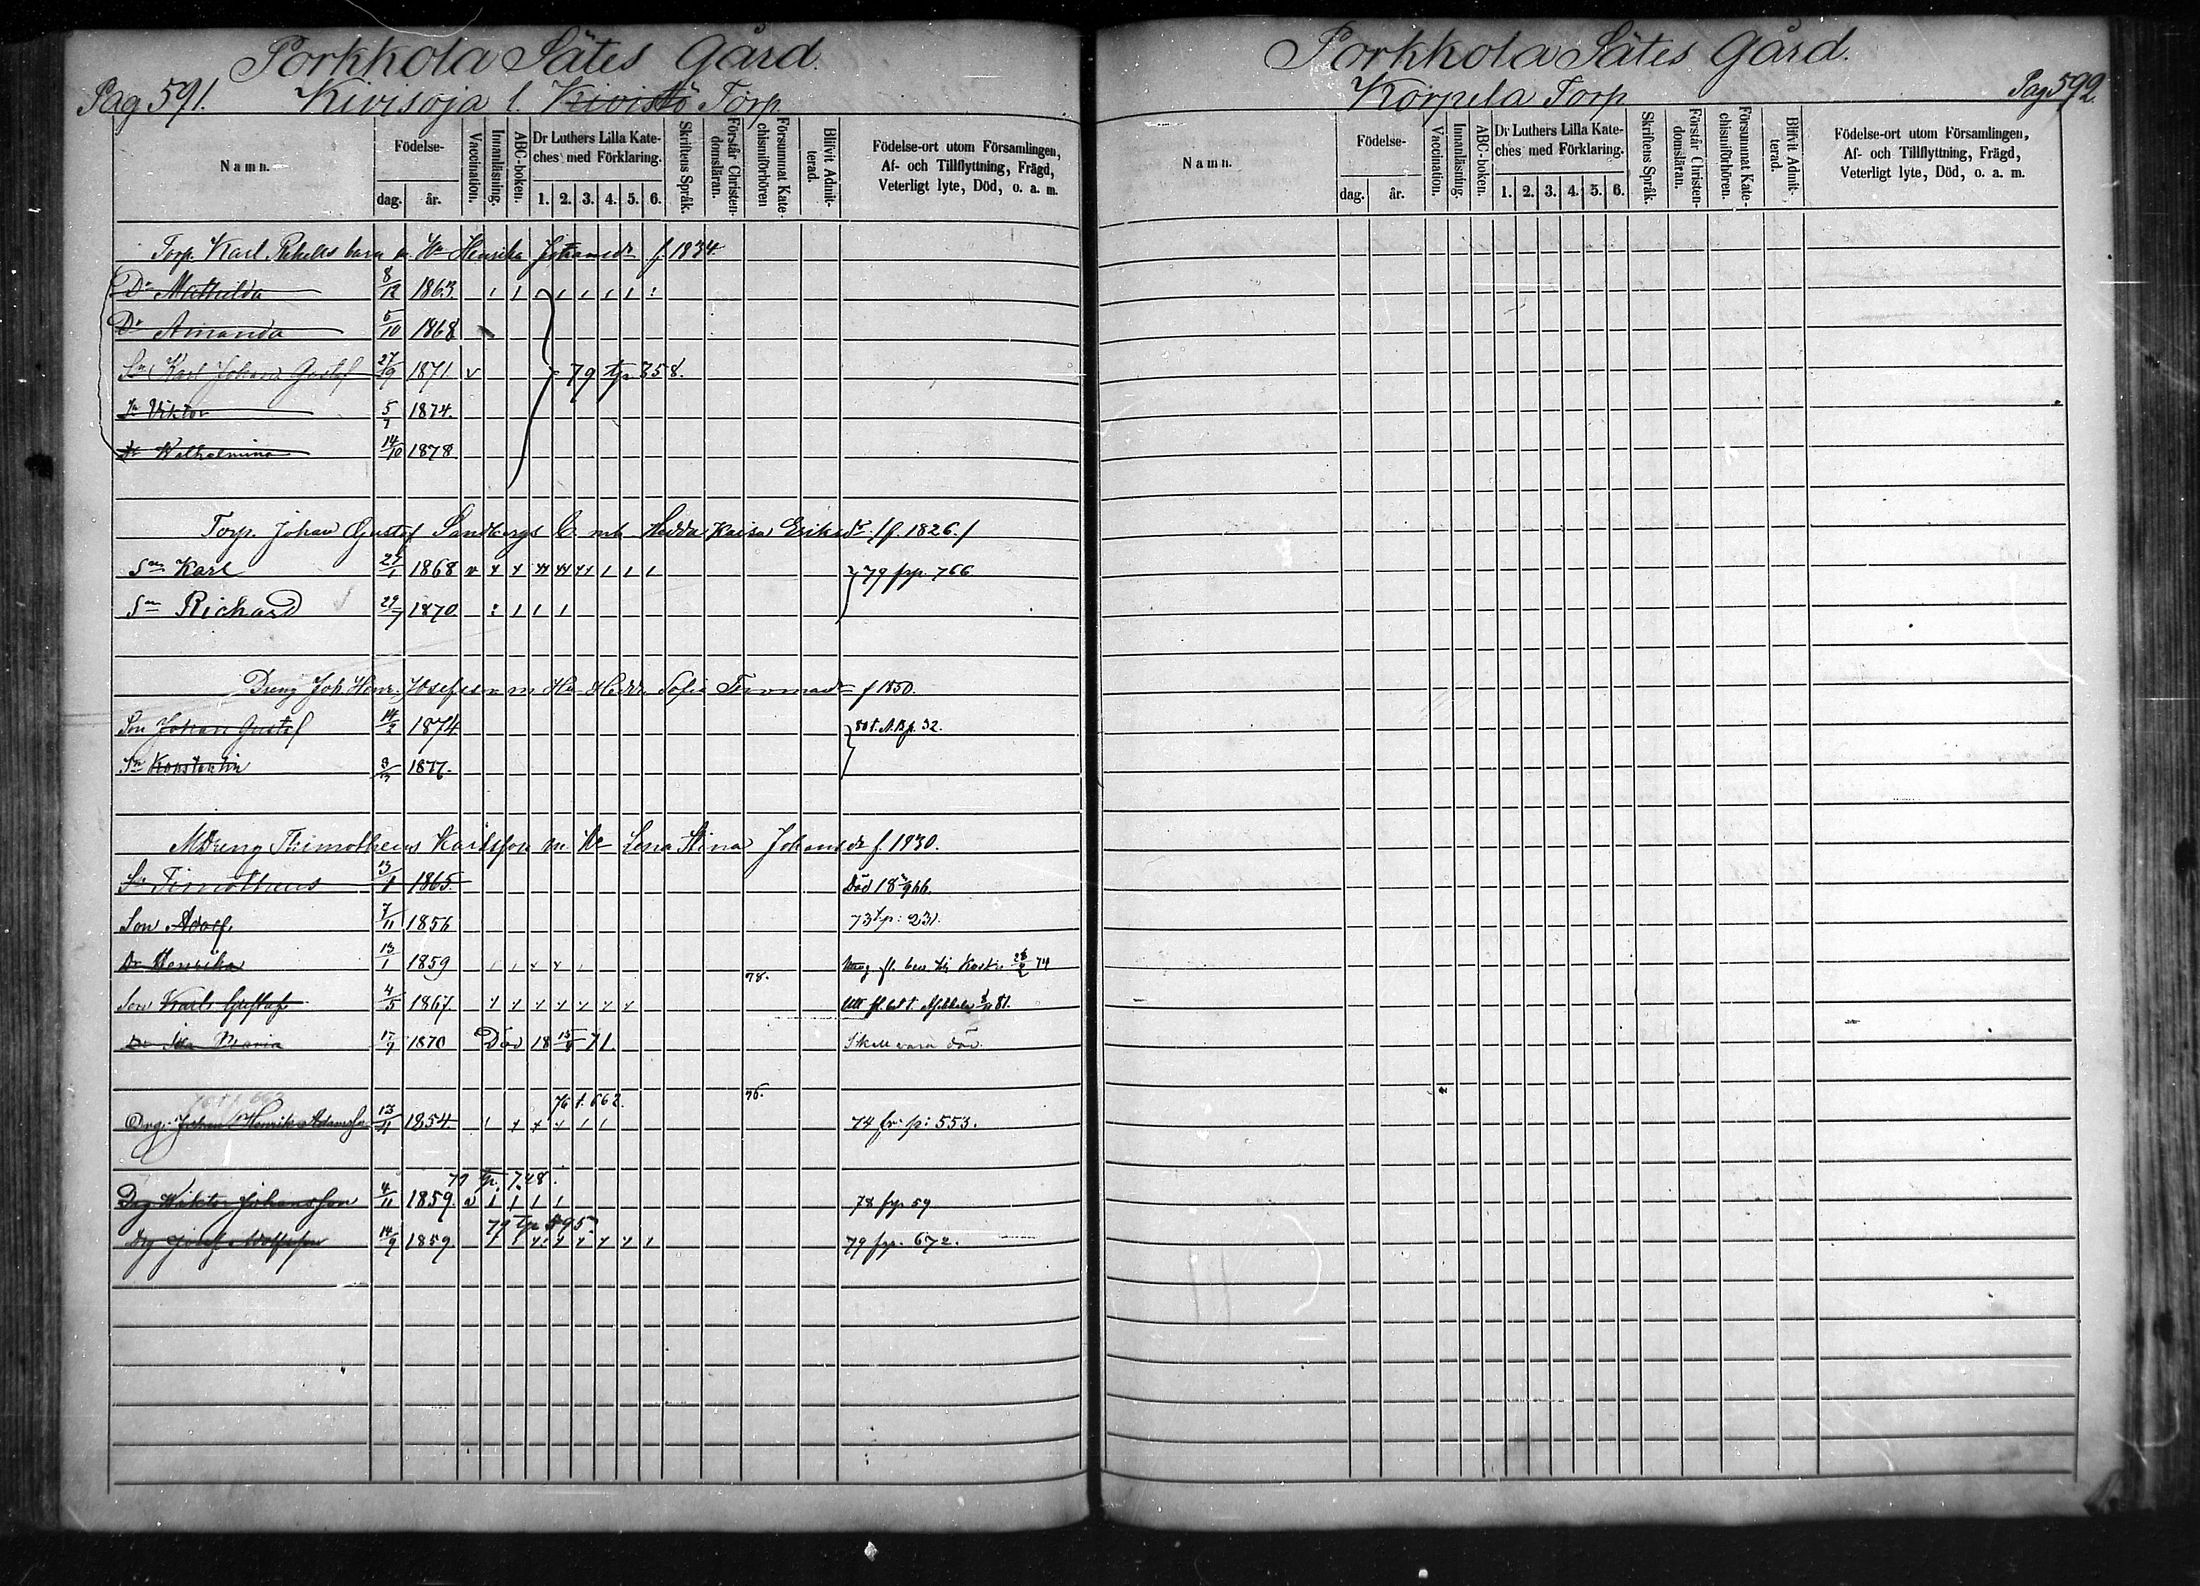 Porkkola Sätes Gård.
Pag 591. Kivisoja l. Kivistö Torp.
Namn. Födelse- dag. år. Vaccination. Innanläsning. ABC-boken. Dr Luthers Lilla Kateches med Förklaring. 1. 2. 3. 4. 5. 6. Skriftens Språk. Förstår Christendomsläran. Försummat Katechismiförhören Blifvit Admitterad. Födelse-ort utom Församlingen, Af- och Tillflyttning, Frägd, Veterligt lyte, Död, o. a. m.
Torp. Karl barn m Hu Henrika Johansdr f. 1834.
Dr Mathilda 8/12 1863.
Dr Amanda 5/10 1868
Sn Karl Johan Gustaf 27/9 1871 v 79 tp 358.
Sn Viktor 5/7 1874.
Dr Wilhelmina 14/10 1878
Torp. Johan Gustaf Sandbergs b. m h Hedda Kaisa Eriksdr /f. 1826./
Sn Karl 1868 v 79 frp. 766
Sn Richard 29/7 1870
Dreng Joh. Henr. Josefsson m Hu Hedda Sofia Thomasdr f 1850.
Son Johan Gustaf 14/2 1874 80 t. A.B. p. 32.
Sn Konstantin 1877.
MDreng Thimotheus Karlsson m Hu Lena Stina Johansdr f 1830.
Sn Timotheus 13/1 1865. Död 18 66.
Son Adolf 7/11 1856 73 tp: 231.
Dr Henrika 13/1 1859 78.
Son Karl Gustaf 4/5 1867.
Dr Ida Maria 17/7 1870 Död 18 71. Skall vara död.
76 t. 662. 76.
Drg: Johan Henrik Adamsson 13/11 1854 74 fr: p: 553.
79 tp. 728.
Drg Wiktor Johansson 4/11 1859. v 78 frp 59
79 tp 595
Drg Josef Adolfsson 14/9 1859. 79 frp. 672.
Porkkola Sätes Gård.
Korpela Torp Pag 592.
Namn. Födelse- dag. år. Vaccination. Innanläsning. ABC-boken. Dr Luthers Lilla Kateches med Förklaring. 1. 2. 3. 4. 5. 6. Skriftens Språk. Förstår Christendomsläran. Försummat Katechismiförhören. Blifvit Admitterad. Födelse-ort utom Församlingen, Af- och Tillflyttning, Frägd, Veterligt lyte, Död, o. a. m.